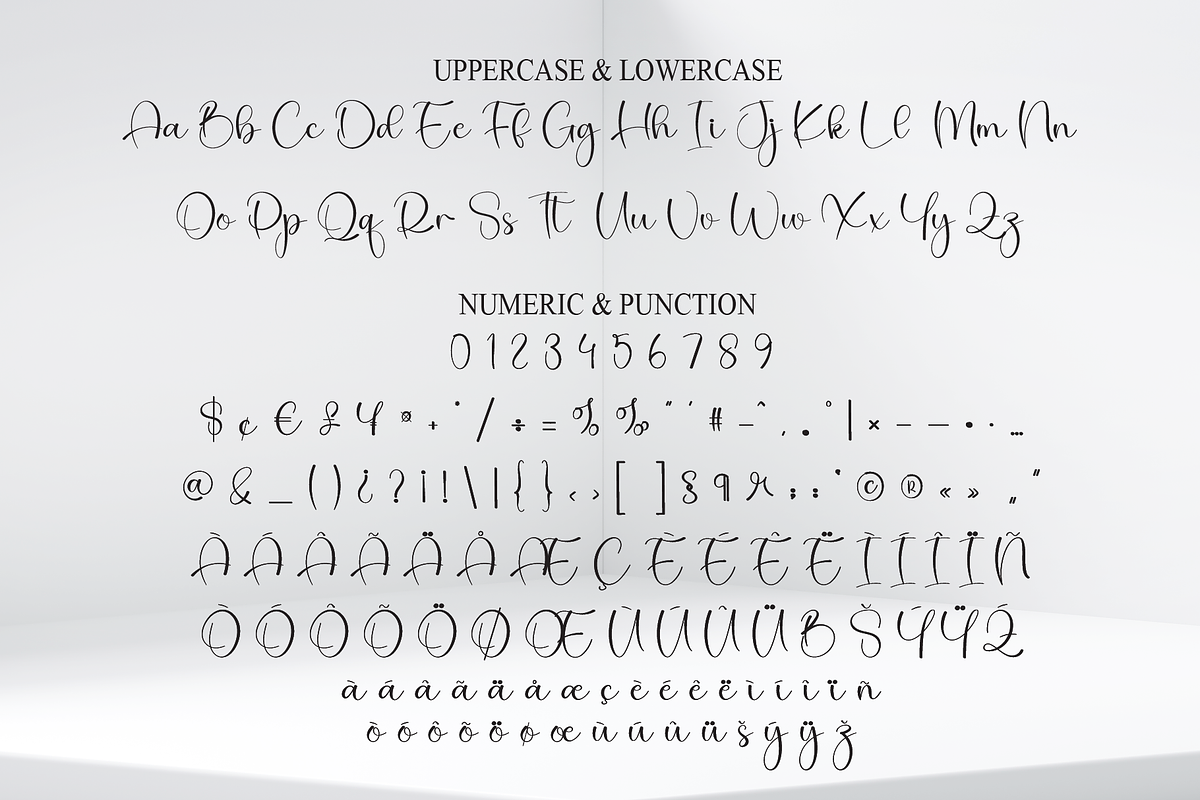 UPPERCASE & LOWERCASE
Aa Bb Cc Dd Ee Ff Gg Hh Ii Jj Kk Ll Mm Nn
Oo Pp Qq Rr Ss Tt Uu Vv Ww Xx Yy Zz
NUMERIC & PUNCTION
0 1 2 3 4 5 6 7 8 9
$ ¢ € £ ¥ ¤ + ˙ / ÷ = % ‰ " ' # – ˆ , . ° | × – — • · …
@ & _ ( ) ¿ ? ¡ ! \ | { } ‹ › [ ] § ¶ ; : ' © ® « » „ "
À Á Â Ã Ä Å Æ Ç È É Ê Ë Ì Í Î Ï Ñ
Ò Ó Ô Õ Ö Ø Œ Ù Ú Û Ü ß Š Ý Ÿ Ž
à á â ã ä å æ ç è é ê ë ì í î ï ñ
ò ó ô õ ö ø œ ù ú û ü š ý ÿ ž